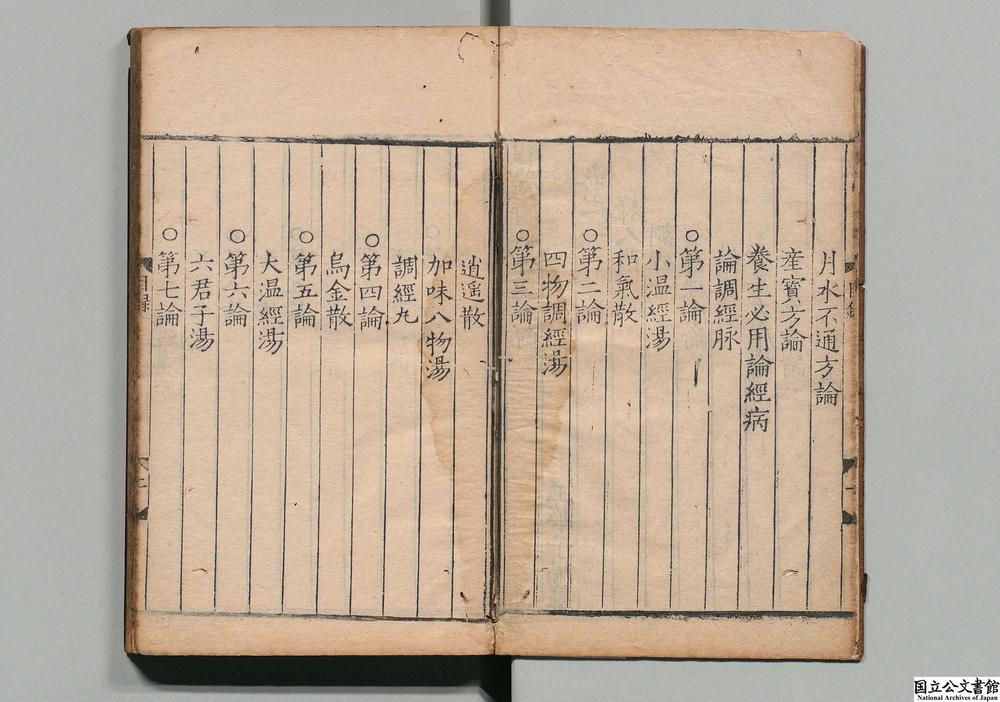 月水不通方論
産寶方論
養生必用論經病
論調經脉
○第一論
小温經湯
和氣散
○第二論
四物調經湯
○第三論
逍遥散
加味八物湯
調經丸
○第四論
烏金散
○第五論
大温經湯
○第六論
六君子湯
○第七論
目録
国立公文書館
National Archives of Japan